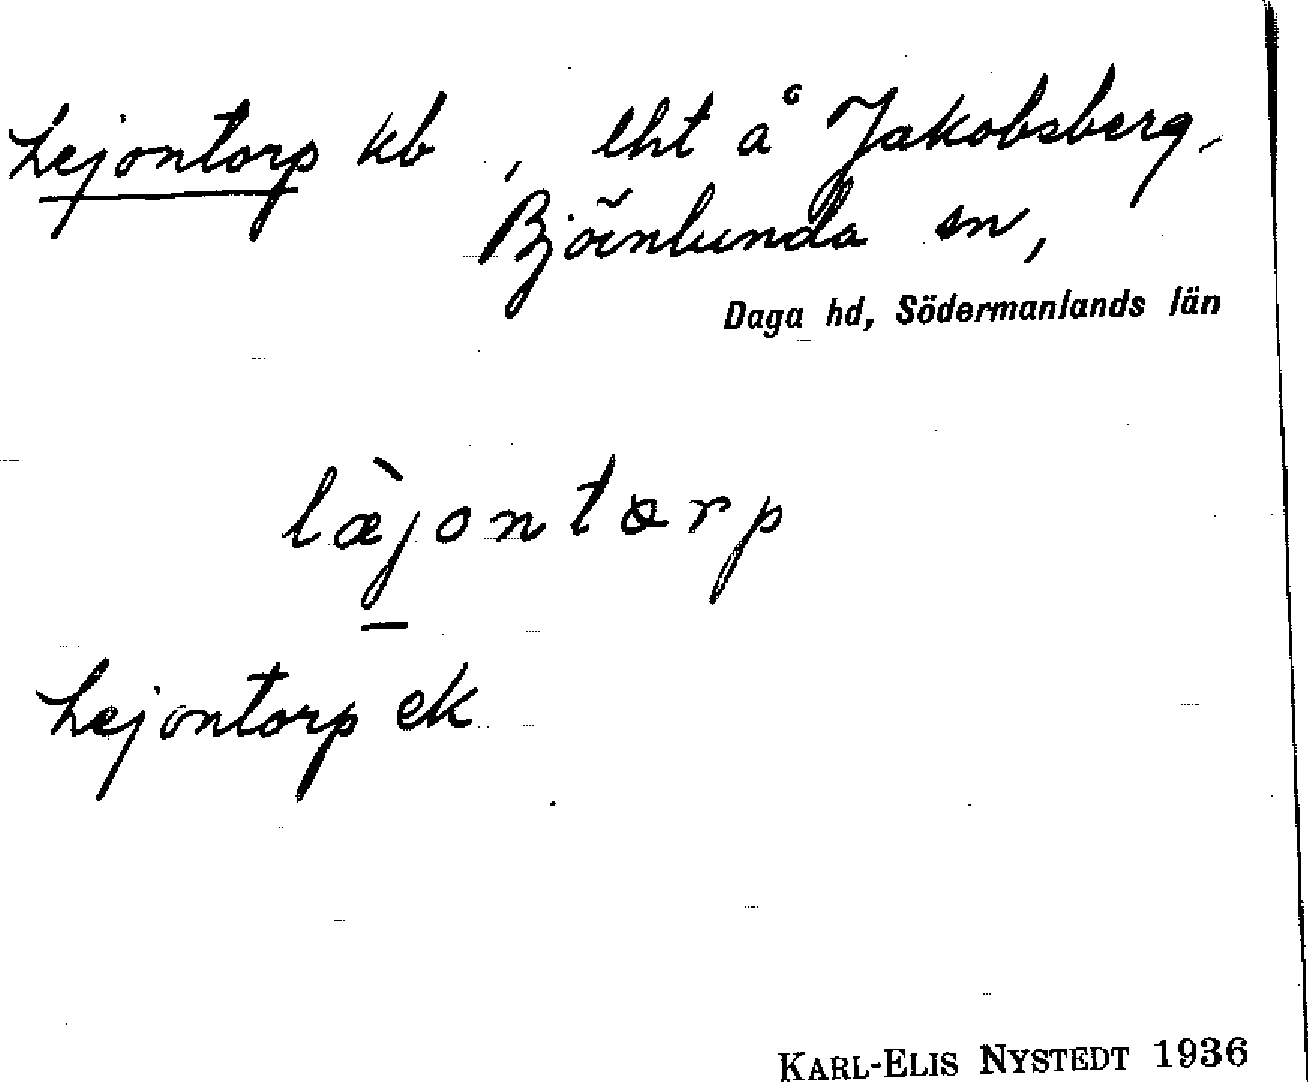 Lejontorp kb, lht å Jakobsberg,
Björnlunda sn,
Daga hd, Södermanlands län
læ̀jontorp
Lejontorp ek
KARL-ELIS NYSTEDT 1936